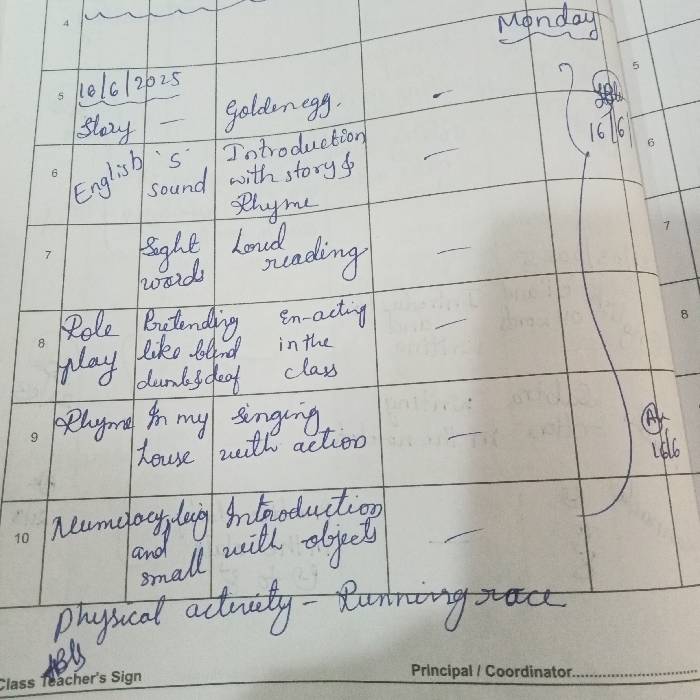 4
Monday
5 16/6/2025
Story — Golden egg. -
16/6
6 English 's' sound Introduction with story & Rhyme —
7 Sight words Loud reading —
8 Role play Pretending like blind dumb & deaf En-acting in the class —
9 Rhyme In my house singing with action —
10 Numeracy big and small Introduction with objects —
Physical activity - Running race
Class Teacher's Sign
Principal / Coordinator
5
6
7
8
16/6